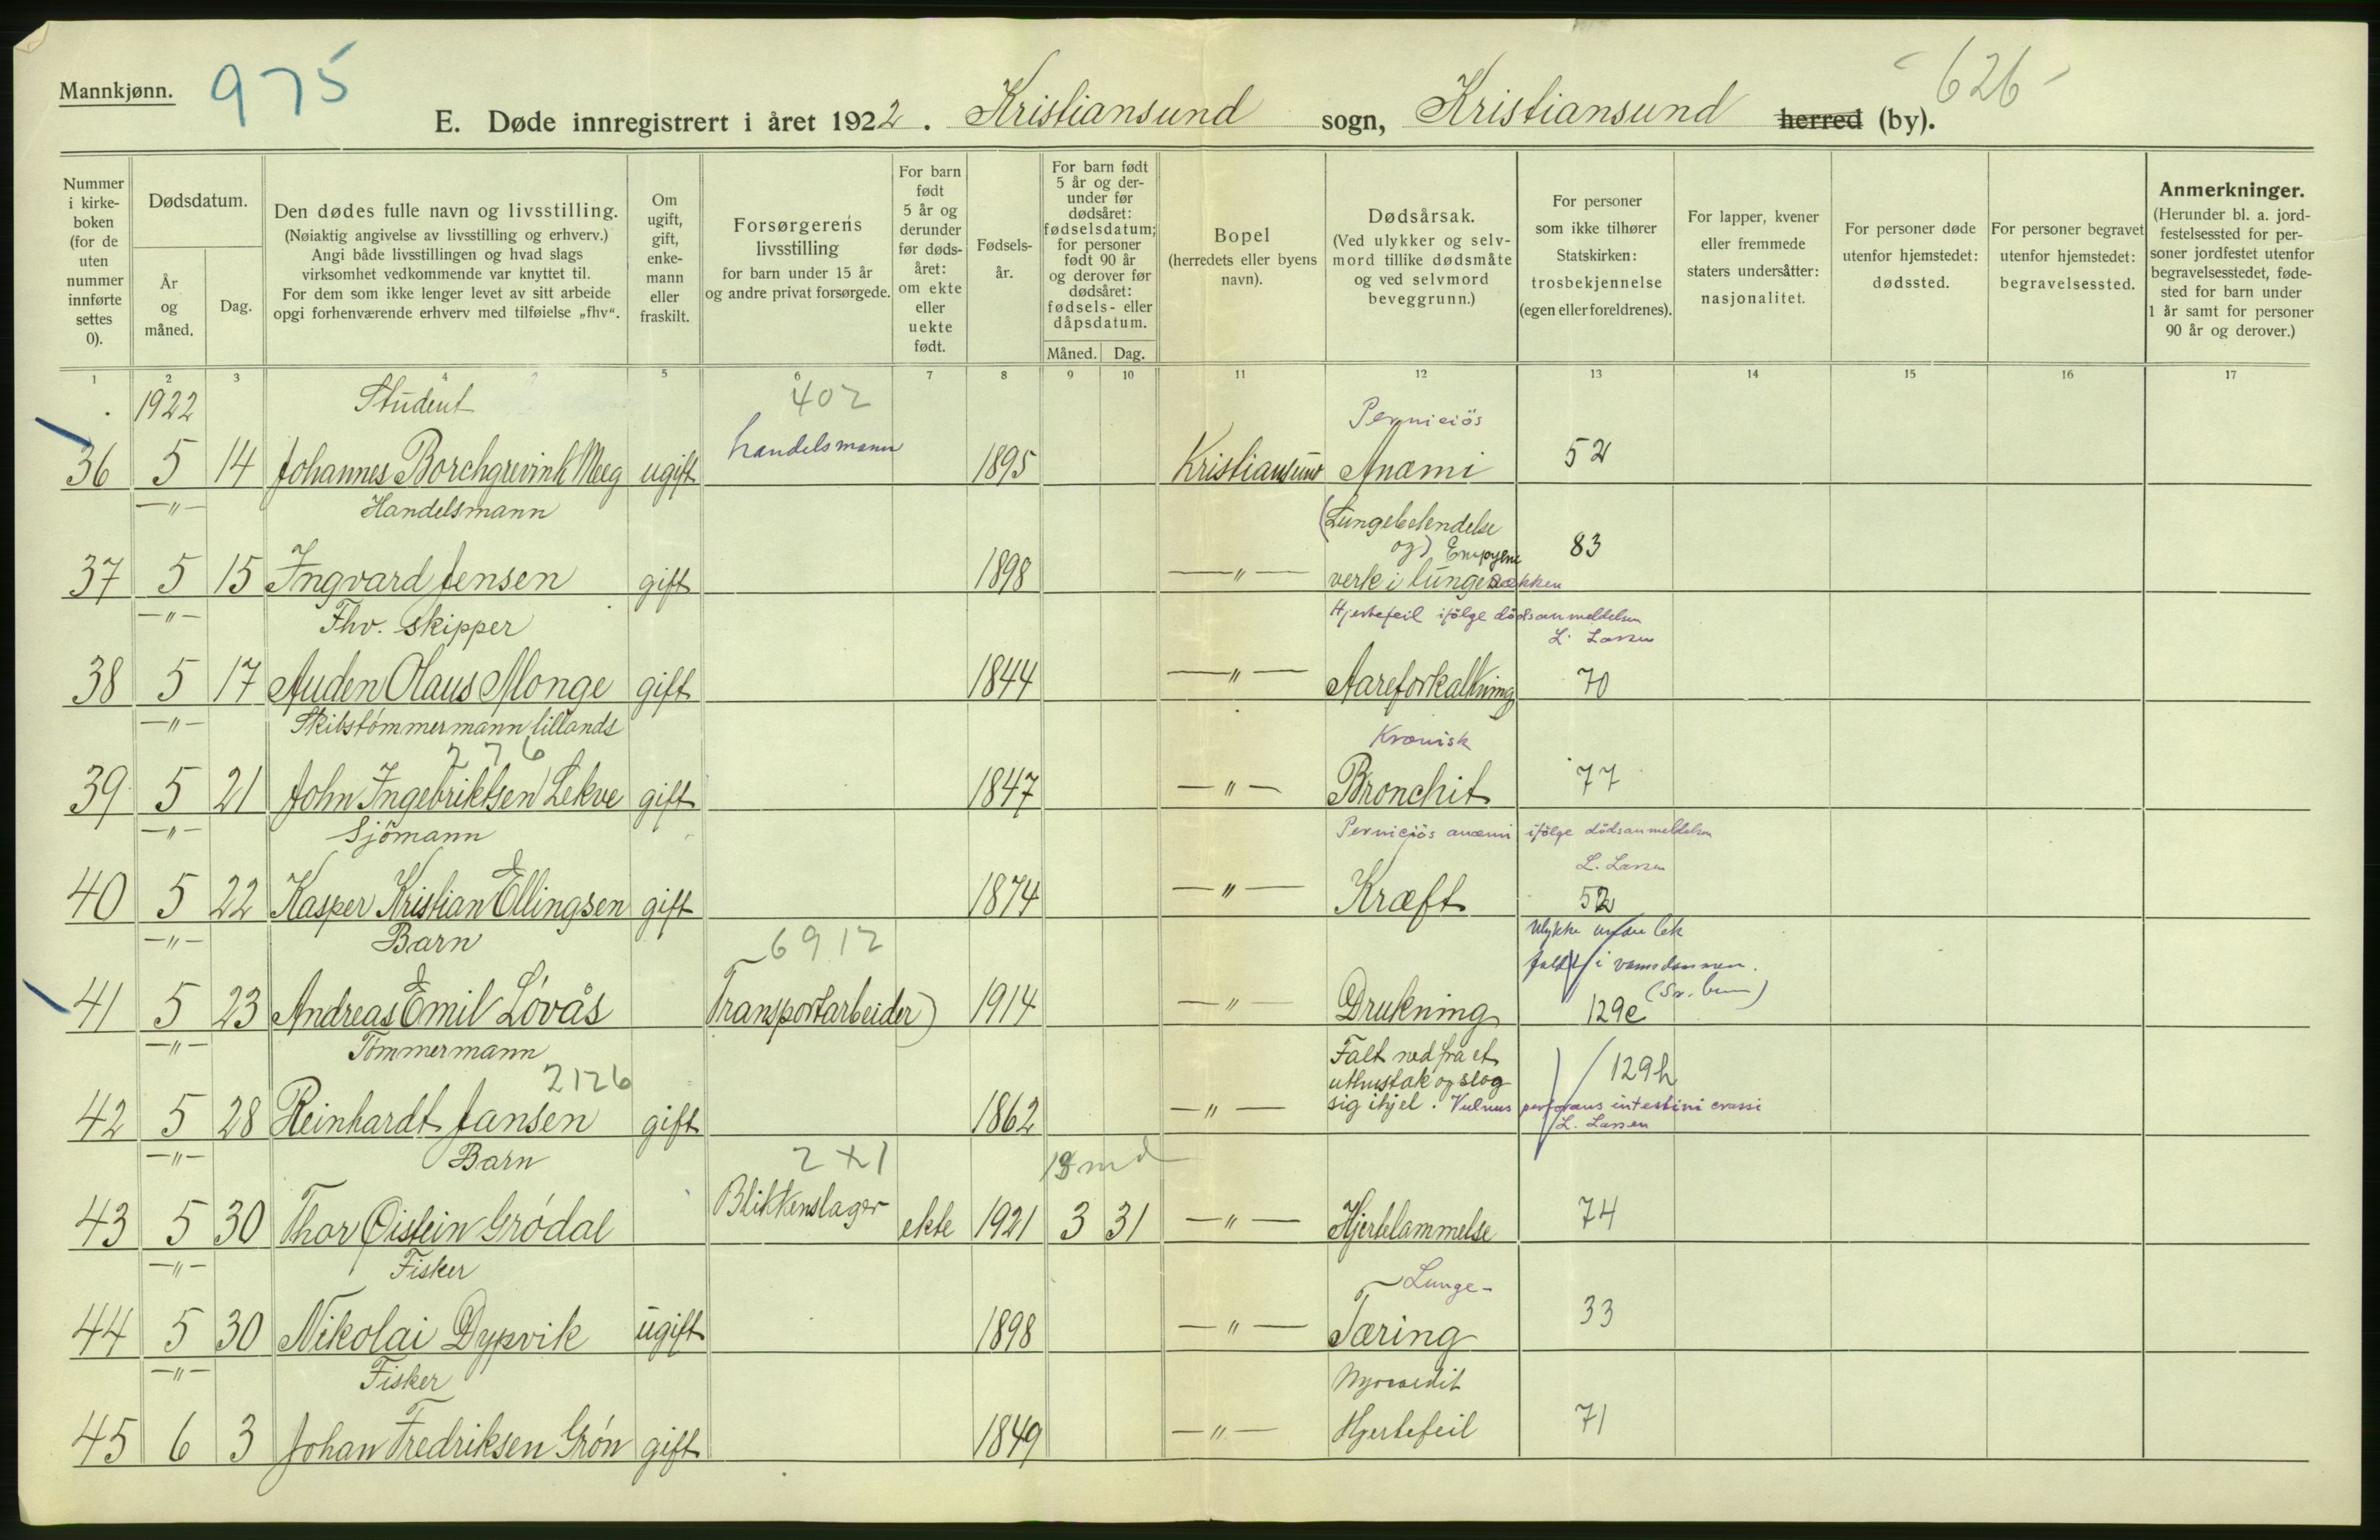 Mannkjønn.
975
- 626 -
E. Døde innregistrert i året 1922. Kristiansund sogn, Kristiansund herred (by).
Nummer i kirke- boken (for de uten nummer innførte settes 0).
Dødsdatum.
År og måned.
Dag.
Den dødes fulle navn og livsstilling.
(Nøiaktig angivelse av livsstilling og erhverv.)
Angi både livsstillingen og hvad slags
virksomhet vedkommende var knyttet til.
For dem som ikke lenger levet av sitt arbeide
opgi forhenværende erhverv med tilføielse „fhv“.
Om ugift, gift, enke- mann eller fraskilt.
Forsørgerens livsstilling
for barn under 15 år
og andre privat forsørgede.
For barn født 5 år og derunder før døds- året: om ekte eller uekte født.
Fødsels- år.
For barn født 5 år og der- under før dødsåret: fødselsdatum; for personer født 90 år og derover før dødsåret: fødsels- eller dåpsdatum.
Måned. Dag.
Bopel
(herredets eller byens navn).
Dødsårsak.
(Ved ulykker og selv- mord tillike dødsmåte og ved selvmord beveggrunn.)
For personer som ikke tilhører Statskirken: trosbekjennelse (egen eller foreldrenes).
For lapper, kvener eller fremmede staters undersåtter: nasjonalitet.
For personer døde utenfor hjemstedet: dødssted.
For personer begravet utenfor hjemstedet: begravelsessted.
Anmerkninger.
(Herunder bl. a. jord- festelsessted for per- soner jordfestet utenfor begravelsesstedet, føde- sted for barn under 1 år samt for personer 90 år og derover.)
1 2 3 4 5 6 7 8 9 10 11 12 13 14 15 16 17
1922 Student 402 Perniciös
36 5 14 Johannes Borchgrevink Meeg ugift handelsmann 1895 Kristiansund Anæmi 52
—"— Handelsmann (Lungebetendelse
og) Empyem 83
37 5 15 Ingvard Jensen gift 1898 —"— verk i lungesækken
—"— Fhv. skipper Hjertefeil ifölge dödsanmeldelsen
L. Larsen
38 5 17 Auden Olaus Monge gift 1844 —"— Aareforkalkning 70
—"— Skibstømmermann tillands Kronisk
276
39 5 21 John Ingebriktsen Lekve gift 1847 —"— Bronchit 77
—"— Sjömann Perniciös anæmi ifölge dödsanmeldelsen
L. Larsen
40 5 22 Kasper Kristian Ellingsen gift 1874 —"— Kræft 52
—"— Barn 6912 Ulykke under lek
faldt i vanndammen.
41 5 23 Andreas Emil Løvås Transportarbeider) 1914 —"— Drukning 129e
—"— Tømmermann Falt ned fra et
2126 uthustak og slog 129h
42 5 28 Reinhardt Jansen gift 1862 —"— sig ihjel. Vulnus perforans intestini crassi
L. Larsen
—"— Barn 2 x 1 md
43 5 30 Thor Øistein Grødal Blikkenslager ekte 1921 3 31 —"— Hjertelammelse 74
—"— Fisker Lunge-
44 5 30 Nikolai Dypvik ugift 1898 —"— Tæring 33
—"— Fisker Myocardit
45 6 3 Johan Fredriksen Grøn gift 1849 —"— Hjertefeil 71